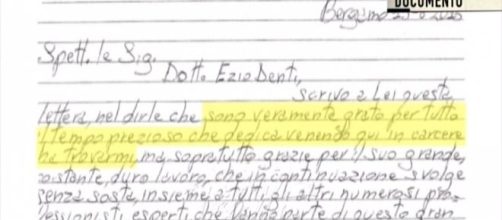 DOCUMENTO
Bergamo
Spett. le Sig.
Dott. Ezio Denti,
scrivo a Lei questa
lettera, nel dirle che sono veramente grato per tutto
il tempo prezioso che dedica venendo qui in carcere
ha trovarmi, ma sopratutto grazie per il suo grande,
costante, duro lavoro, che in continuazione svolge
senza sosta, insieme a tutti gli altri numerosi pro_
fessionisti esperti che fanno parte di questo dram_